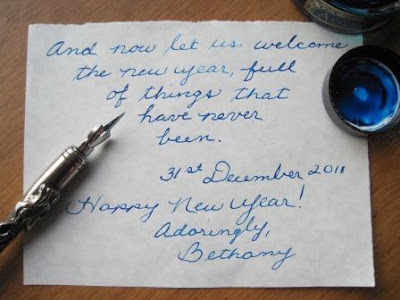 And now let us welcome
the new year, full
of things that
have never
been.
31st December 2011
Happy New Year!
Adoringly,
Bethany